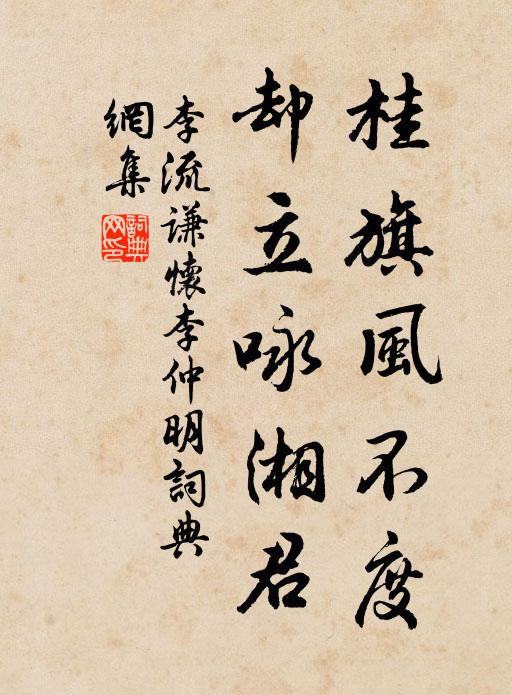 桂旗風不度
却立咏湘君
李流謙懷李仲明詞典
網集
詞典網印